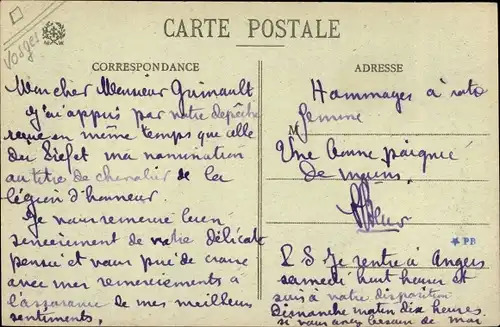 Vosges
CARTE POSTALE
CORRESPONDANCE
Mon cher Monsieur Guinault
J'ai appris par votre depêche
reçue en même temps que celle
du Préfet ma nomination
au titre de chevalier de la
légion d'honneur.
Je vous remercie bien
sincèrement de votre délicate
pensée et vous prie de croire
avec mes remerciements à
l'assurance de mes meilleurs
sentiments.
ADRESSE
Hommages à votre
femme
M
Une bonne poignée
de mains.
PB
P S Je rentre à Angers
samedi huit heures et
suis à votre disposition
Dimanche matin dix heures.
si vous avez besoin de moi